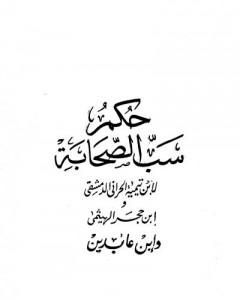 حُكمُ
سَبِّ الصَّحَابَةِ
لابن تيمية الحراني الدمشقى
و
ابن حجر الهيثمى
وابن عابدين